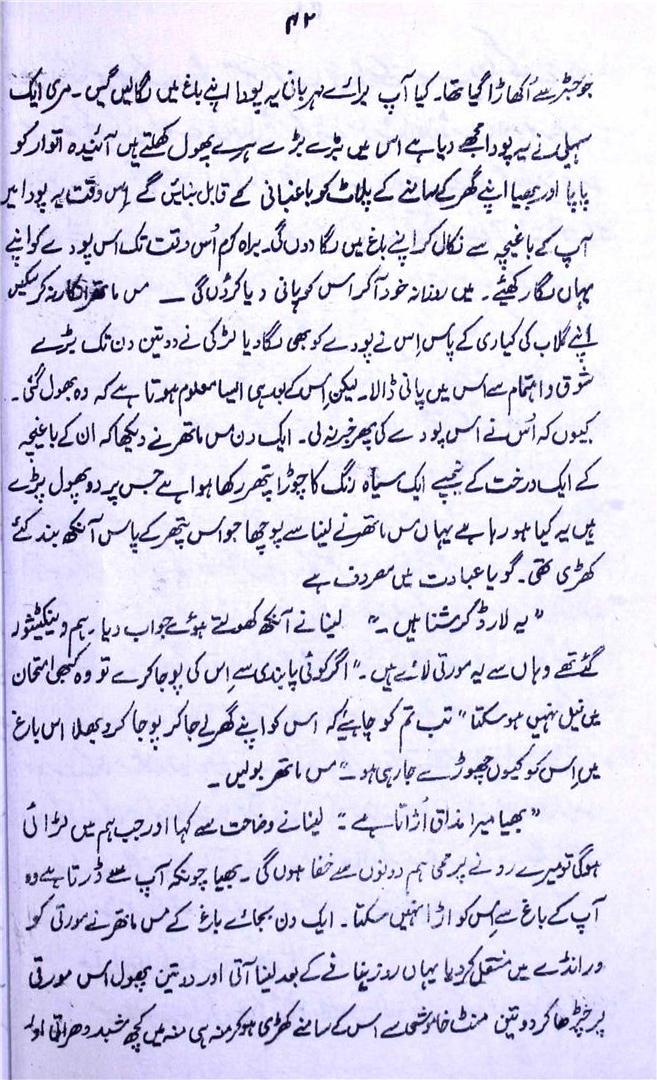 ۴۲
جو جڑ سے اُکھاڑا گیا تھا۔ کیا آپ برائے مہربانی یہ پودا اپنے باغ میں لگالیں گیں۔ مری ایک
سہیلی نے یہ پودا مجھے دیا ہے اس میں بڑے بڑے سرے پھول کھلتے ہیں آئیندہ اتوار کو
پاپا اور بھیا اپنے گھر کے سامنے کے پلاٹ کو باغبانی کے قابل بنائیں گے اِس وقت یہ پودا میں
آپ کے باغیچہ سے نکال کر اپنے باغ میں لگا دوں گی۔ براہ کرم اُس وقت تک اس پودے کو اپنے
یہاں لگا رکھیئے۔ میں روزانہ خود آکر اس کو پانی دیا کروں گی — مس ماتھر انکار نہ کر سکیں
اپنے گلاب کی کیاری کے پاس اِس نے پودے کو بھی لگا دیا لڑکی نے دو تین دن تک بڑے
شوق و اہتمام سے اس میں پانی ڈالا۔ لیکن اِس کے بعد ہی ایسا معلوم ہوتا ہے کہ وہ بھول گئی۔
کیوں کہ اُس نے اس پودے کی پھر خبر نہ لی۔ ایک دن مس ماتھر نے دیکھا کہ ان کے باغیچہ
کے ایک درخت کے نیچے ایک سیاہ رنگ کا چوڑا پتھر رکھا ہوا ہے جس پر دو پھول پڑے
ہیں یہ کیا ہو رہا ہے یہاں مس ماتھر نے لینا سے پوچھا جو اس پتھر کے پاس آنکھ بند کئے
کھڑی تھی۔ گویا عبادت میں مصروف ہے
"یہ لارڈ کرشنا ہیں۔" لینا نے آنکھ کھولتے ہوئے جواب دیا۔ ہم وینکٹیشور
گئے تھے وہاں سے یہ مورتی لائے ہیں۔ "اگر کوئی پابندی سے اِس کی پوجا کرے تو وہ کبھی امتحان
میں فیل نہیں ہو سکتا" تب تم کو چاہیئے کہ اس کو اپنے گھر لے جا کر پوجا کرو بھلا اس باغ
میں اِس کو کیوں چھوڑے جا رہی ہو۔" مس ماتھر بولیں۔
"بھیا میرا مذاق اُڑاتا ہے" لینا نے وضاحت سے کہا اور جب ہم میں لڑائی
ہوگی تو میرے رونے پر ممی ہم دونوں سے خفا ہوں گی۔ بھیا چونکہ آپ سے ڈرتا ہے وہ
آپ کے باغ سے اِس کو اڑا نہیں سکتا۔ ایک دن بجائے باغ کے مس ماتھر نے مورتی کو
ورانڈے میں منتقل کر دیا یہاں روز نہانے کے بعد لینا آتی اور دو تین پھول اس مورتی
پر چڑھا کر دو تین منٹ خاموشی سے اس کے سامنے کھڑی ہو کر منہ ہی منہ میں کچھ شبد دھراتی اور